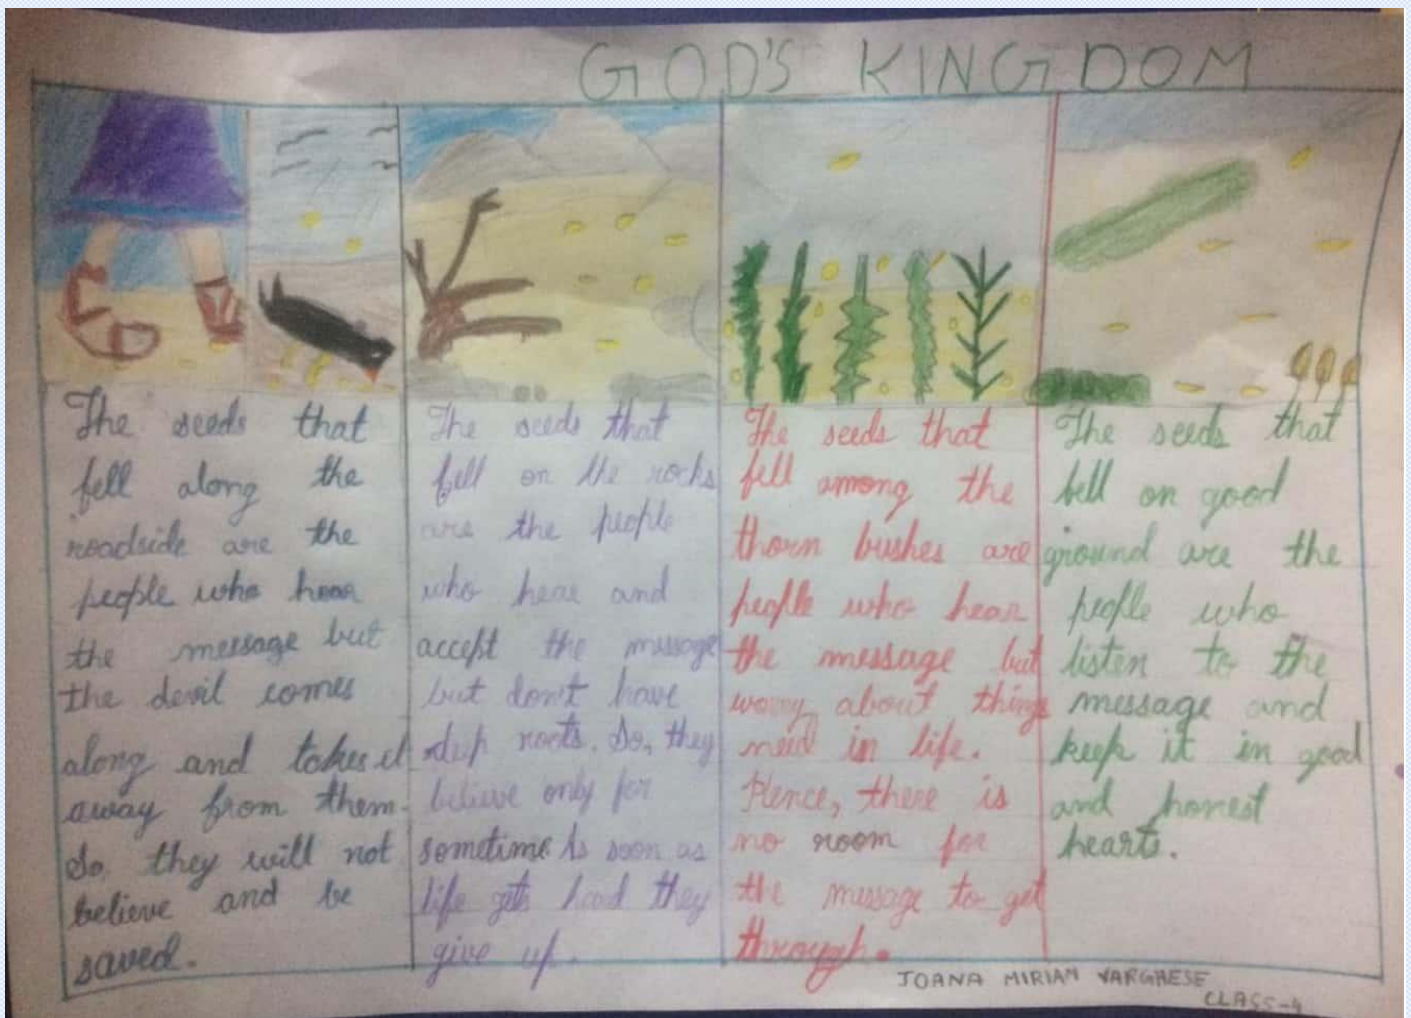 GOD'S KINGDOM
The seeds that
fell along the
roadside are the
people who hear
the message but
the devil comes
along and takes it
away from them.
So, they will not
believe and be
saved.
The seeds that
fell on the rocks
are the people
who hear and
accept the message
but don't have
deep roots. So, they
believe only for
sometime. As soon as
life gets hard they
give up.
The seeds that
fell among the
thorn bushes are
people who hear
the message but
worry about things
need in life.
Hence, there is
no room for
the message to get
through.
The seeds that
fell on good
ground are the
people who
listen to the
message and
keep it in good
and honest
hearts.
JOANA MIRIAN VARGHESE
CLASS-4